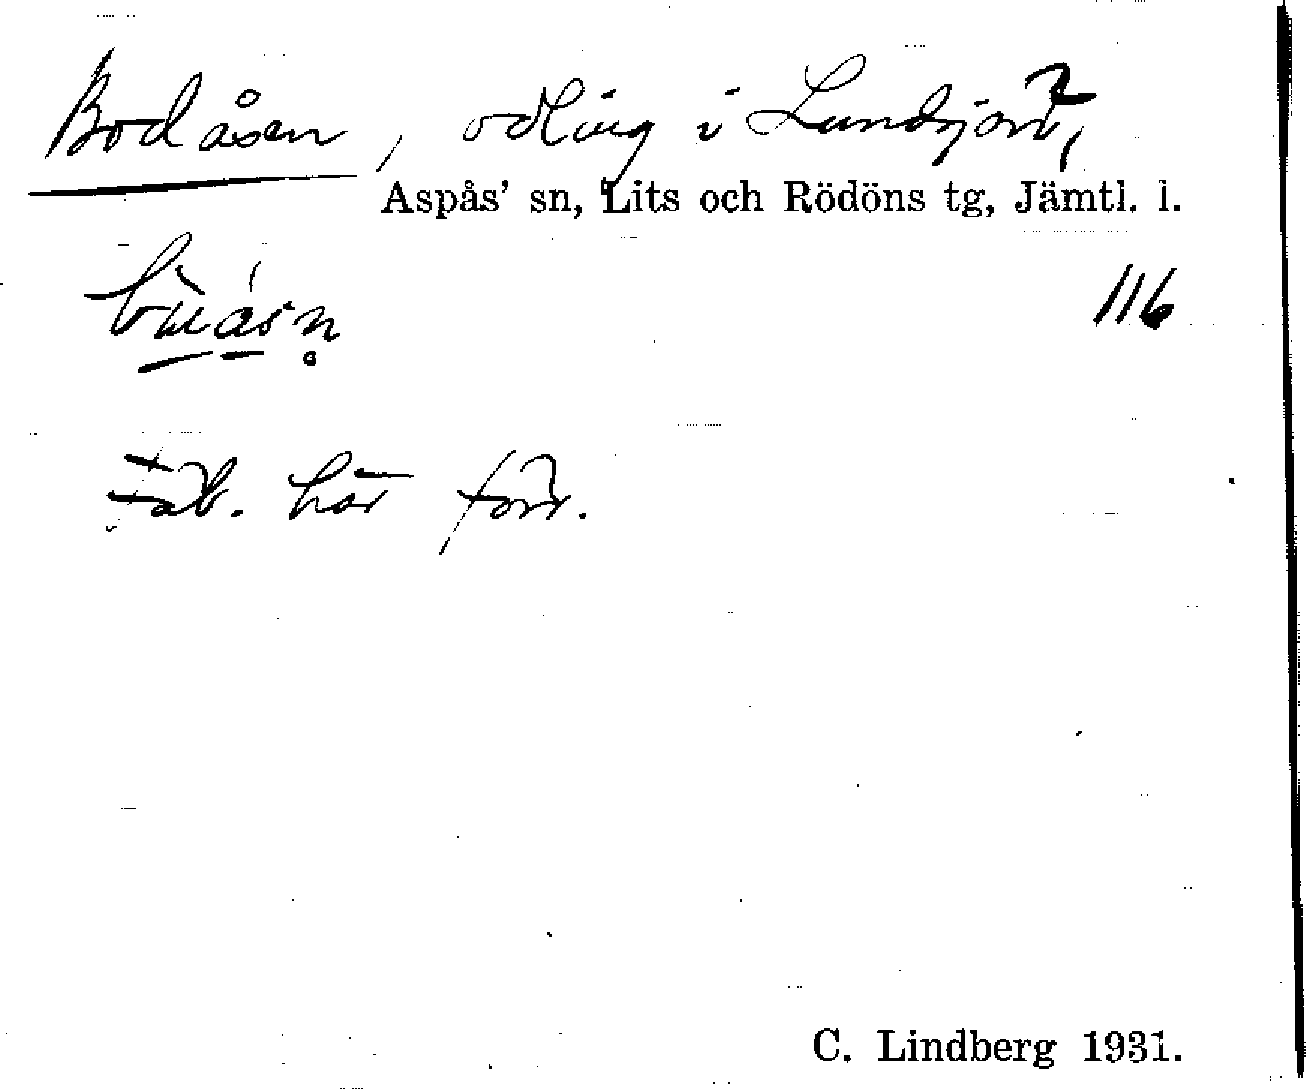 Bodåsen, odling i Lundsjön,
Aspås' sn, Lits och Rödöns tg, Jämtl. l.
116
Fäb. här förr.
C. Lindberg 1931.